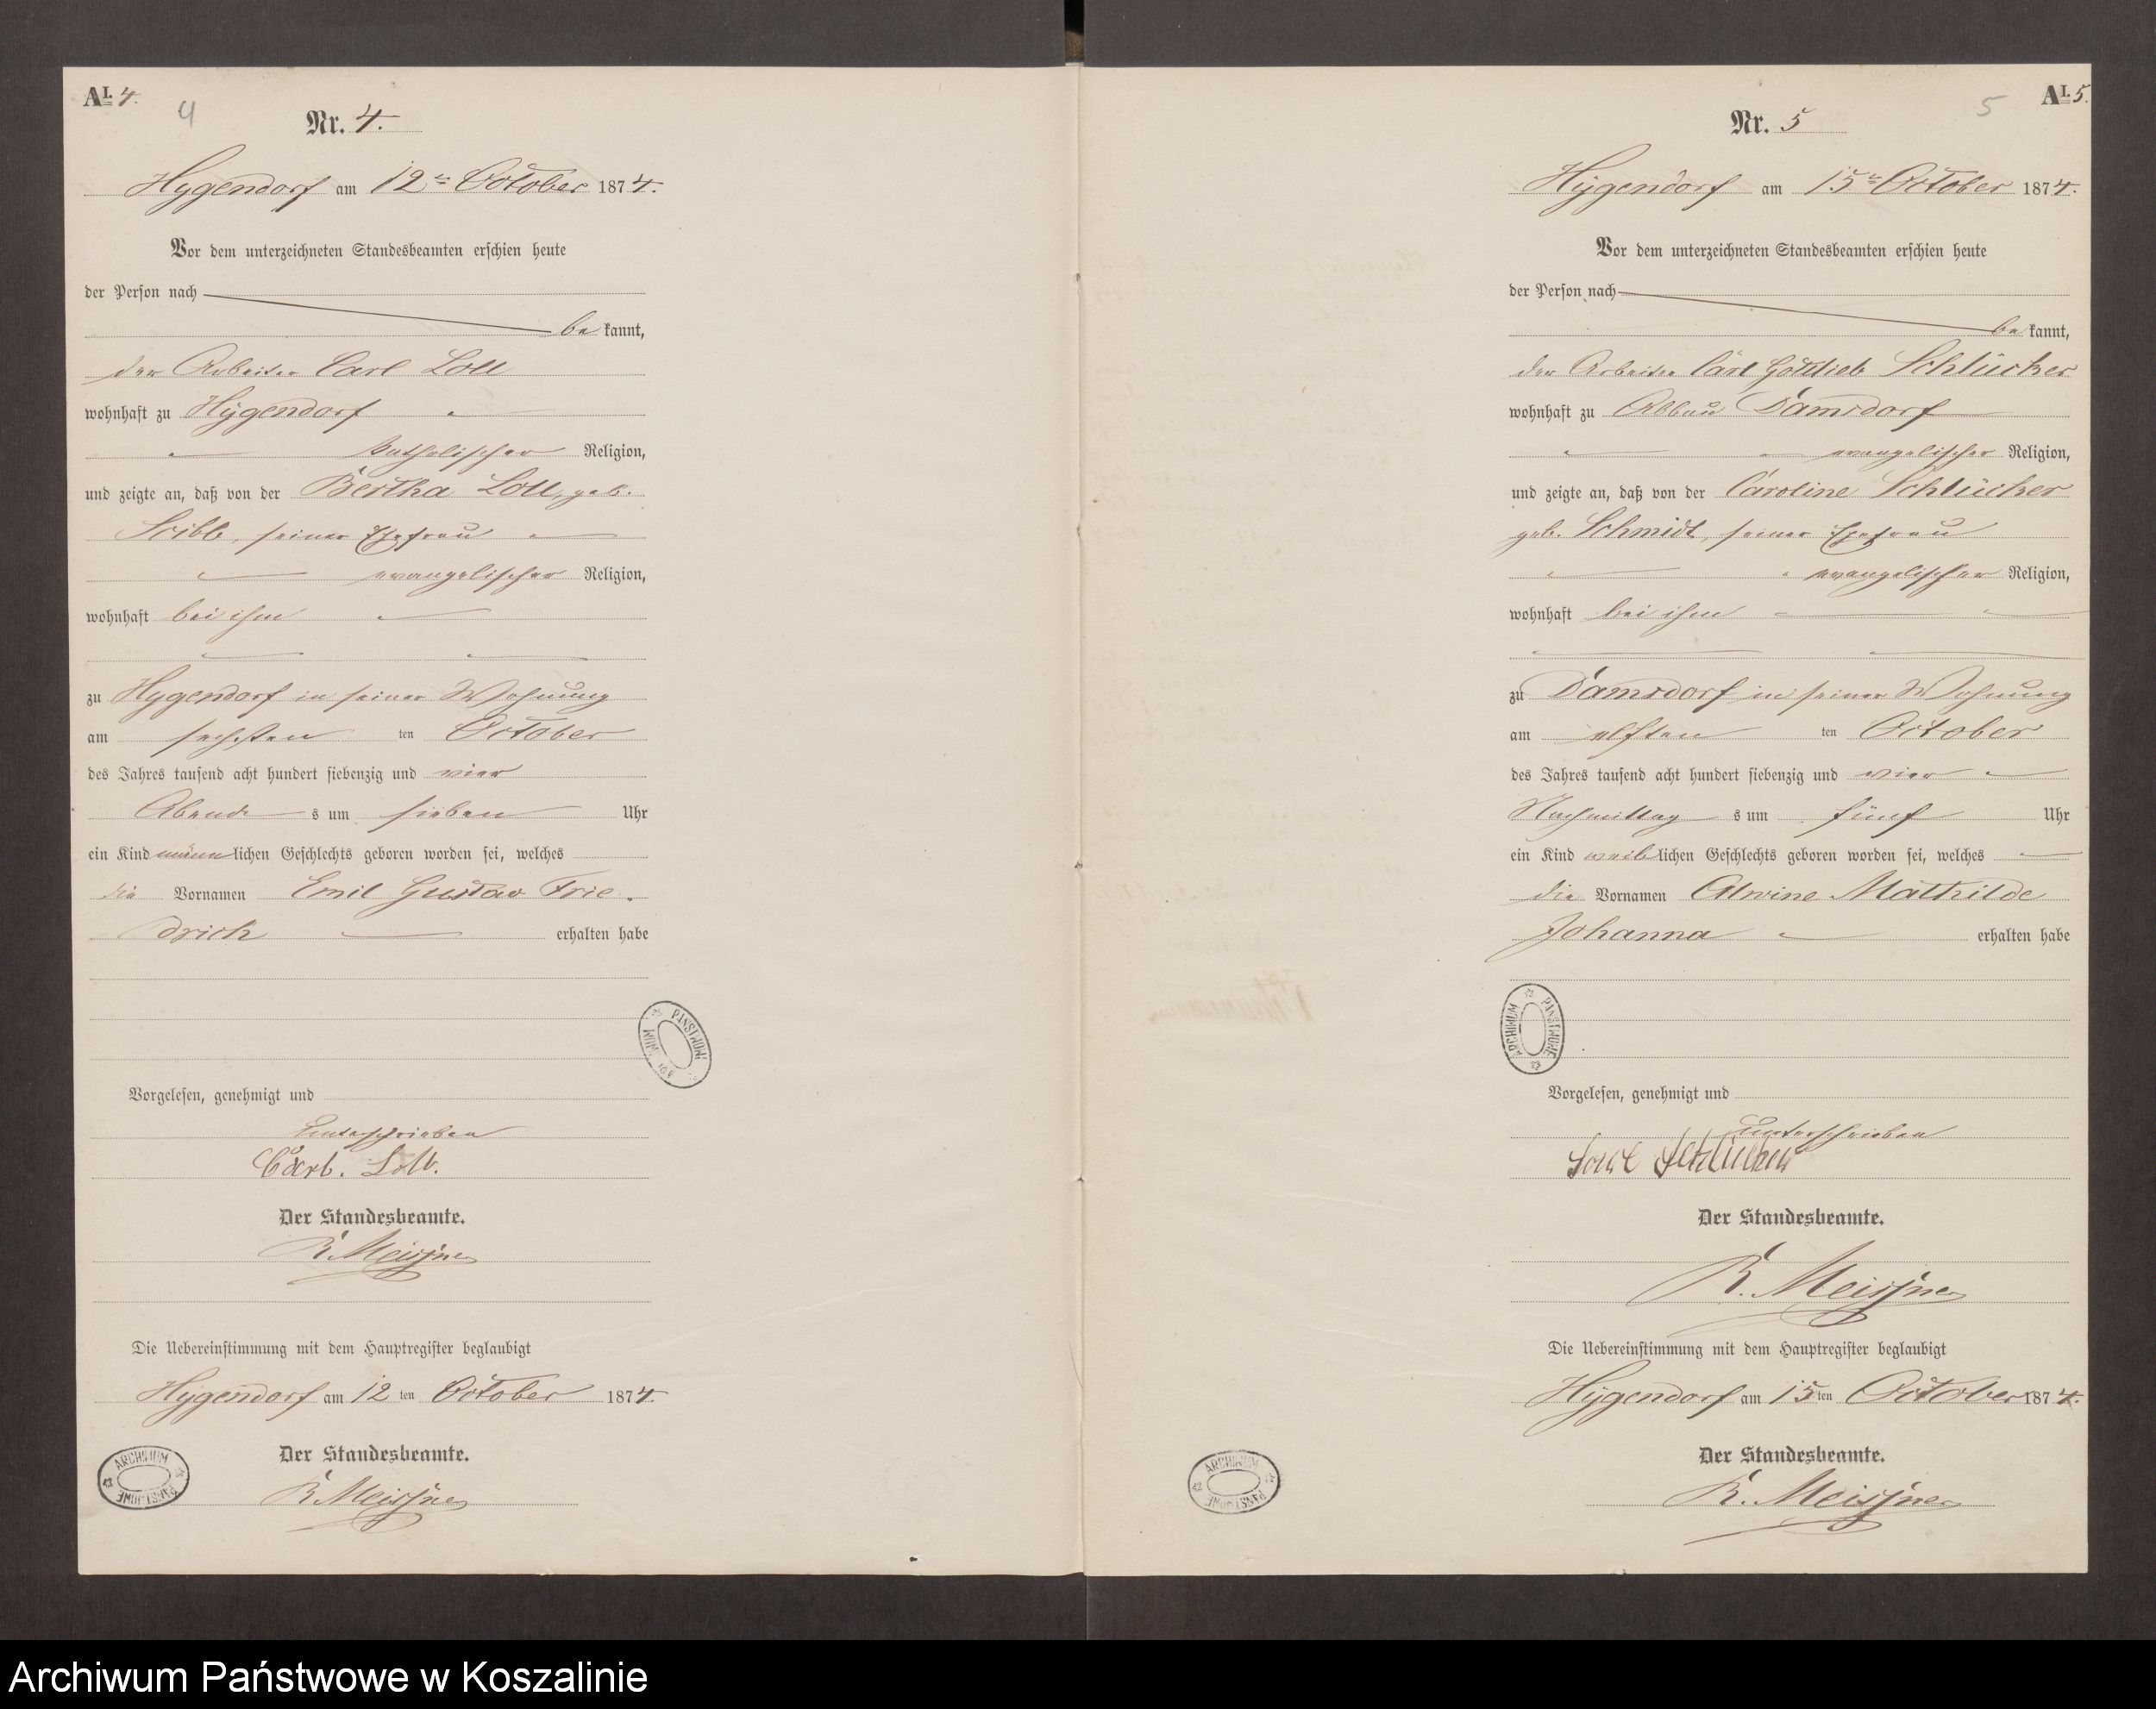 AI. 4.
4
Nr. 4.
Hygendorf am 12ten October 1874.
Vor dem unterzeichneten Standesbeamten erschien heute
der Person nach
bekannt,
der Arbeiter Carl Loll
wohnhaft zu Hygendorf
katholischer Religion,
und zeigte an, daß von der Bertha Loll, geb.
seiner Ehefrau
evangelischer Religion,
wohnhaft bei ihm
zu Hygendorf in seiner Wohnung
am sechsten ten October
des Jahres tausend acht hundert siebenzig und vier
Abends um sieben Uhr
ein Kind männlichen Geschlechts geboren worden sei, welches
die Vornamen Emil Gustav Frie-
drich erhalten habe
Vorgelesen, genehmigt und
unterschrieben
Carl. Loll.
Der Standesbeamte.
R. Meissner
Die Uebereinstimmung mit dem Hauptregister beglaubigt
Hygendorf am 12 ten October 1874.
Der Standesbeamte.
R. Meissner
ARCHIWUM PAŃSTWOWE
AI. 5.
5
Nr. 5
Hygendorf am 15ten October 1874.
Vor dem unterzeichneten Standesbeamten erschien heute
der Person nach
bekannt,
der Arbeiter Carl Gottlieb Schlücker
wohnhaft zu Abbau Damsdorf
evangelischer Religion,
und zeigte an, daß von der Caroline Schlücker
geb. Schmidt, seiner Ehefrau
evangelischer Religion,
wohnhaft bei ihm
zu Damsdorf in seiner Wohnung
am elften ten October
des Jahres tausend acht hundert siebenzig und vier
Nachmittags um fünf Uhr
ein Kind weiblichen Geschlechts geboren worden sei, welches
die Vornamen Alwine Mathilde
Johanna erhalten habe
Vorgelesen, genehmigt und
unterschrieben
Der Standesbeamte.
R. Meissner
Die Uebereinstimmung mit dem Hauptregister beglaubigt
Hygendorf am 15ten October 1874.
Der Standesbeamte.
R. Meissner
ARCHIWUM PAŃSTWOWE
Archiwum Państwowe w Koszalinie